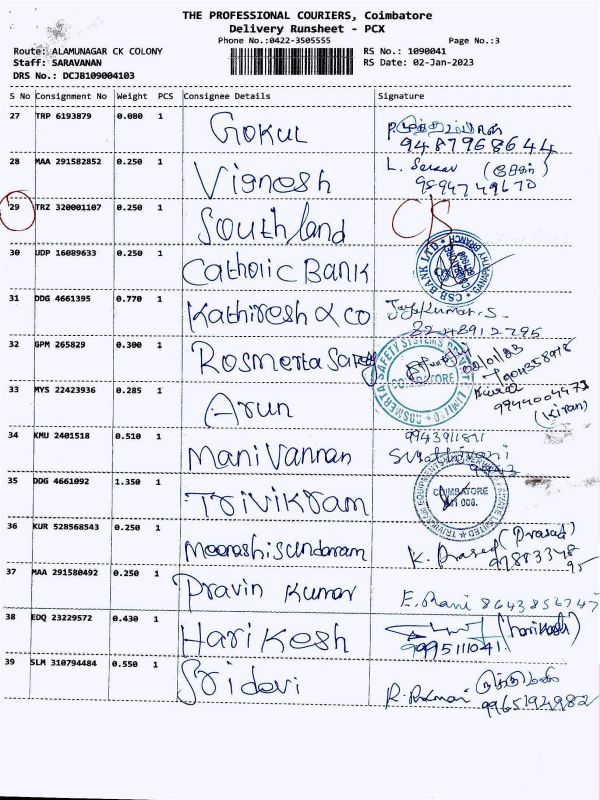 THE PROFESSIONAL COURIERS, Coimbatore
Delivery Runsheet - PCX
Phone No.:0422-3505555 Page No.:3
Route: ALAMUNAGAR CK COLONY RS No.: 1090041
Staff: SARAVANAN RS Date: 02-Jan-2023
DRS No.: DCJB109004103
S No Consignment No Weight PCS Consignee Details Signature
27 TRP 6193879 0.080 1 Gokul
9487968644
28 MAA 291582852 0.250 1 Vignesh L.
9894749670
29 TRZ 320001107 0.250 1 Southland
30 UDP 16089633 0.250 1 Catholic Bank CSB BANK LTD
31 DDG 4661395 0.770 1 Kathiresh & co Jayakumar.S.
32 GPM 265829 0.300 1 Rosmerta Safety ROSMERTA SAFETY SYSTEMS LIMITED COIMBATORE 02/01/23
33 MYS 22423936 0.285 1 Arun 9944004473
(Kiran)
34 KMU 2401518 0.510 1 Manivannan
35 DDG 4661092 1.350 1 Trivikram COIMBATORE
36 KUR 528568543 0.250 1 Meenashisundaram K. Prasad (Prasad)
37 MAA 291580492 0.250 1 Pravin Kumar E. Rani 8643856747
38 EDQ 23229572 0.430 1 Harikesh (harikesh)
9995111041
39 SLM 310794484 0.550 1 Sridevi
9965192982